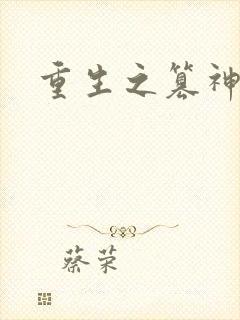 重生之篡神
蔡荣